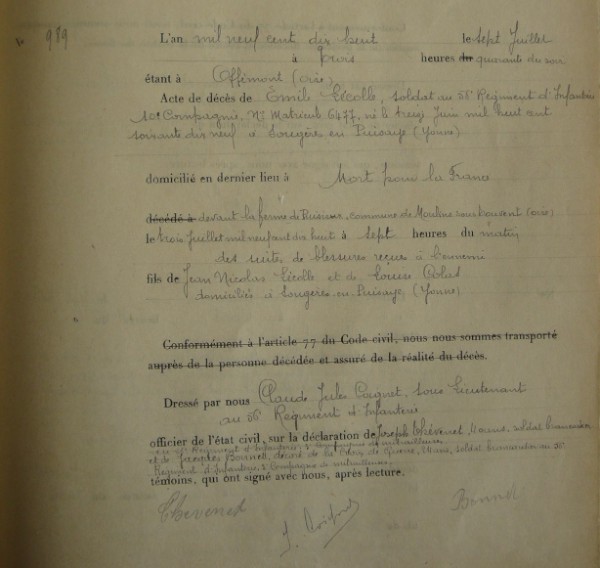 989
L'an mil neuf cent dix huit le sept Juillet
à trois heures du quarante du soir
étant à Offémont (oise)
Acte de décès de Emile Lécolle, soldat au 56e Régiment d'Infanterie
10e Compagnie, No Matricule 6477, né le treize Juin mil huit cent
soixante dix neuf à Lougère en Puisaye (Yonne)
domicilié en dernier lieu à Mort pour la France
décédé à devant la ferme de commune de Moulin sous Touvent (oise)
le trois Juillet mil neuf cent dix huit à sept heures du matin
des suites de blessures reçues à l'ennemi
fils de Jean Nicolas Lécolle et de Louise Colas
domiciliés à Lougère en Puisaye (Yonne)
Conformément à l'article 77 du Code civil, nous nous sommes transporté
auprès de la personne décédée et assuré de la réalité du décès.
Dressé par nous Claude Jules Coignet, sous Lieutenant
au 56e Régiment d'Infanterie
officier de l'état civil, sur la déclaration de Joseph Thévenet, ans, soldat brancardier
au 56e Régiment d'Infanterie, Compagnie de mitrailleuses
et de Bonnet, décoré de la Croix de Guerre, ans, soldat brancardier au 56e
Régiment d'Infanterie, Compagnie de mitrailleuses,
témoins, qui ont signé avec nous, après lecture.
Thevenet J. Coignet Bonnet